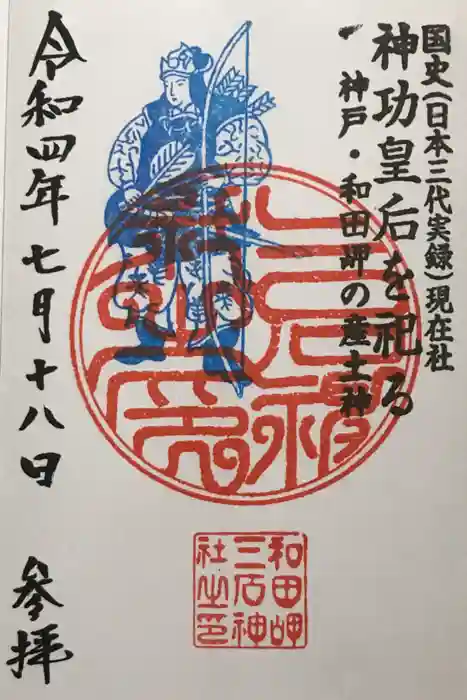 国史(日本三代実録)現在社
神功皇后を祀る
神戸・和田岬の産土神
令和四年七月十八日 参拝
和田岬
三石神
社之印